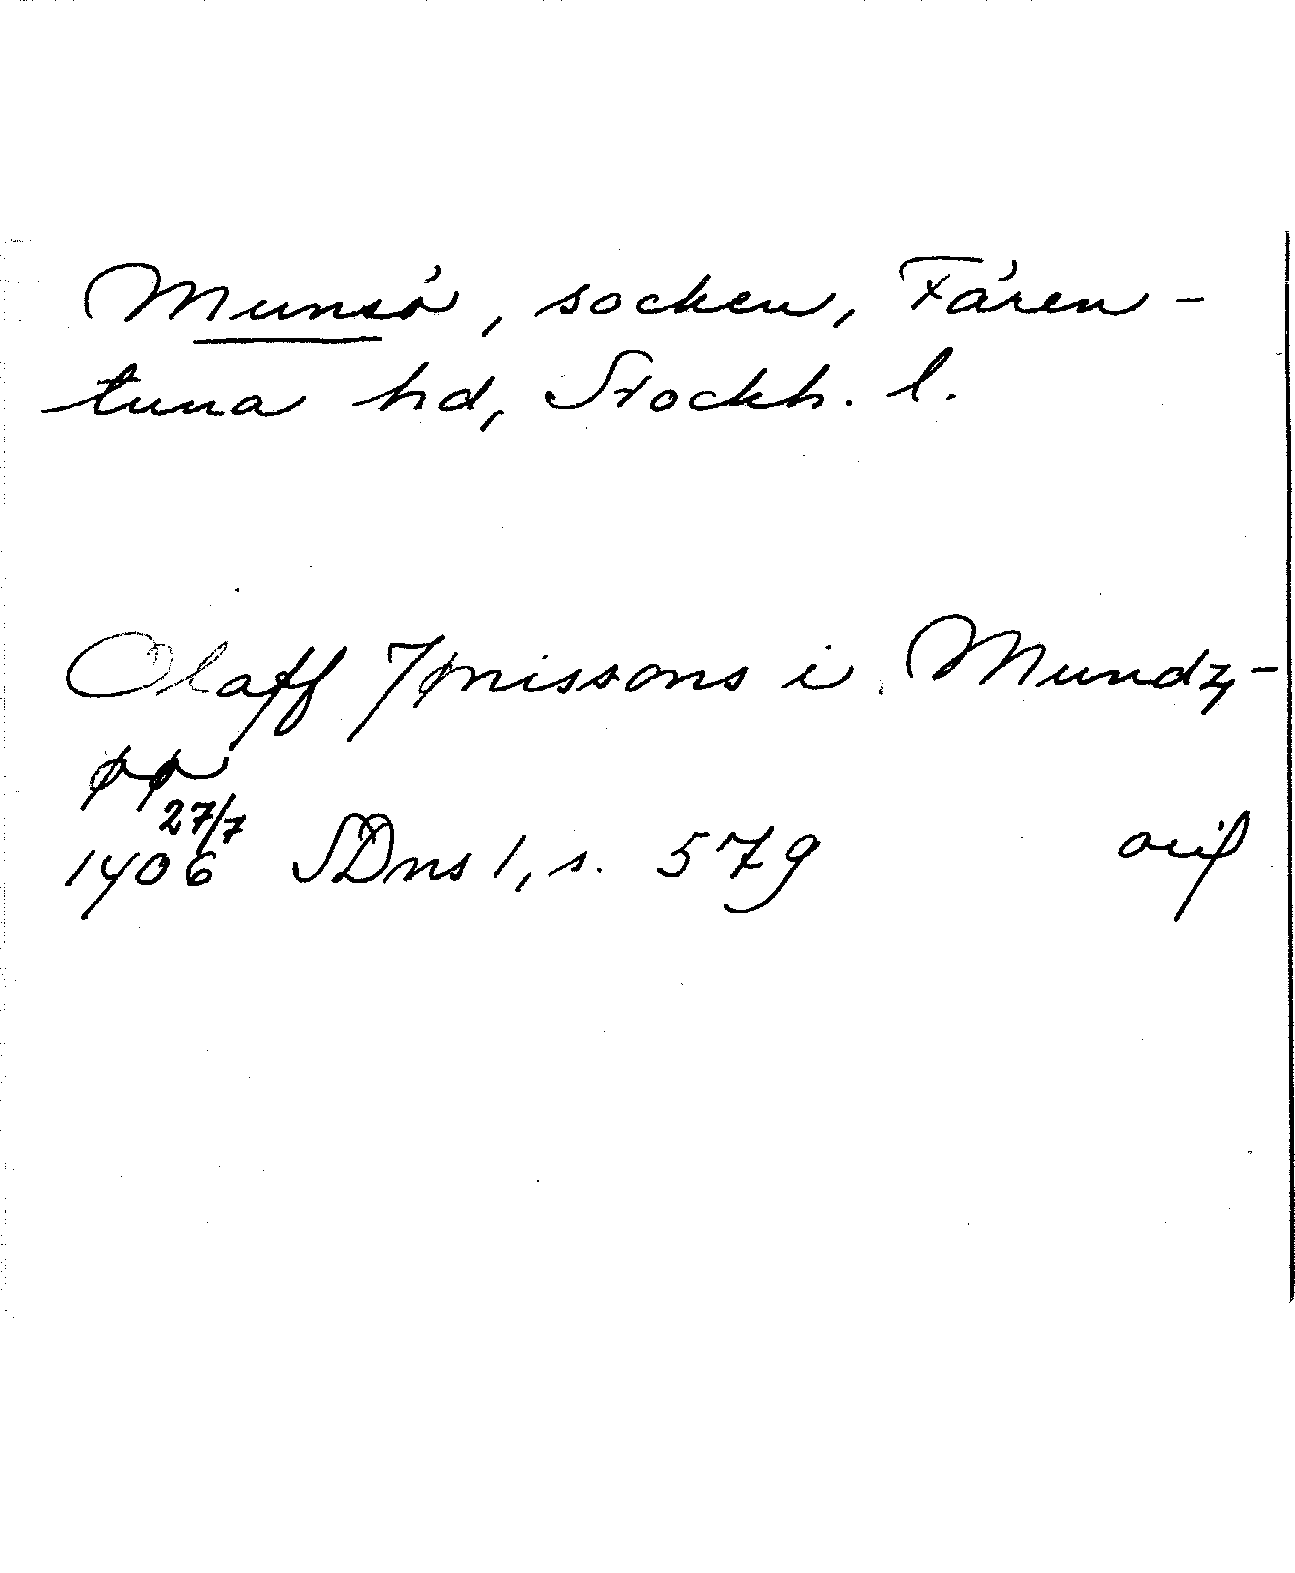 Munsö, socken, Fären-
tuna hd, Stockh. l.
Olaff Jønissons i Mundz-
øø
27/7
1406 SDns 1, s. 579 orig